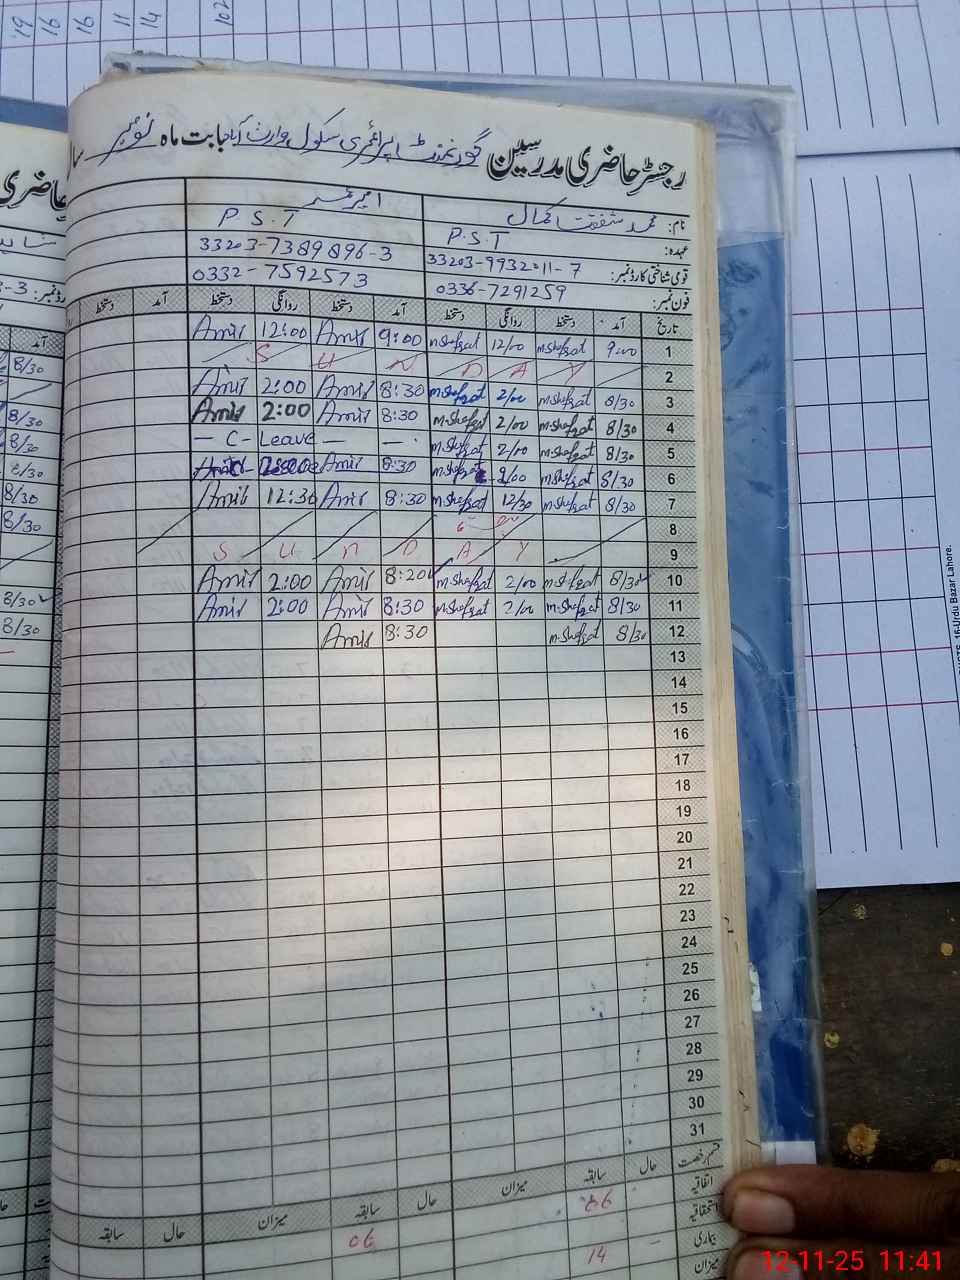 19 16 16 11 14 102
رجسٹر حاضری مدرسین گورنمنٹ پرائمری سکول وارث آباد بابت ماہ نومبر
نام: محمد شفقت کمال
عہدہ: P.S.T P.S.T
قومی شناختی کارڈ نمبر: 33203-9932011-7 33203-7389896-3
فون نمبر: 0336-7291259 0332-7592573
تاریخ آمد دستخط روانگی دستخط آمد دستخط روانگی دستخط آمد دستخط
Amir 12:00 Amir 9:00 m.Shafqat 12/00 m.Shafqat 9:00 1
S U N D A Y 2
Amir 2:00 Amir 8:30 m.Shafqat 2/00 m.Shafqat 8/30 3
Amir 2:00 Amir 8:30 m.Shafqat 2/00 m.Shafqat 8/30 4
— C - Leave — — m.Shafqat 2/00 m.Shafqat 8/30 5
Amir 8:30 m.Shafqat 2/00 m.Shafqat 8/30 6
Amir 12:30 Amir 8:30 m.Shafqat 12/30 m.Shafqat 8/30 7
8
S U N D A Y 9
Amir 2:00 Amir 8:20 m.Shafqat 2/00 m.Shafqat 8/30 10
Amir 2:00 Amir 8:30 m.Shafqat 2/00 m.Shafqat 8/30 11
Amir 8:30 m.Shafqat 8/30 12
13
14
15
16
17
18
19
20
21
22
23
24
25
26
27
28
29
30
31
قسم رخصت حال سابقہ میزان حال سابقہ میزان حال سابقہ
اتفاقیہ
استحقاقیہ
بیماری 06
میزان 14
حاضری
آمد
8/30
8/30
8/30
8/30
8/30
8/30
8/30
8/30
16-Urdu Bazar Lahore.
12-11-25 11:41